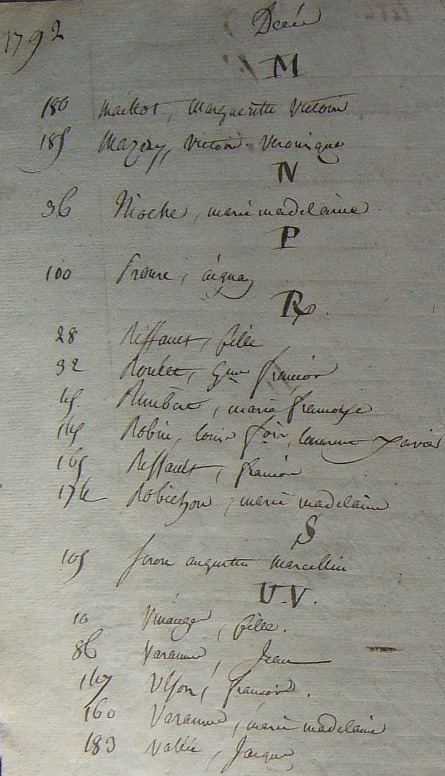 1792
Décès
M
180 Maillot, Margueritte Victoire
185 Mazery, Victoire Veronique
N
36 Nioche, marie madelaine
P
100
R
28 Riffault, fille
32 Roulet, françois
Rimbert, marie françoise
Robin, Louis Xavier
165 Riffault, françois
174 Robichon, marie madelaine
S
105 augustin marcellin
U.V.
10 fille.
86 Varanne, Jean
147 françois.
160 Varanne, marie madelaine
183 Vallée, Jacques